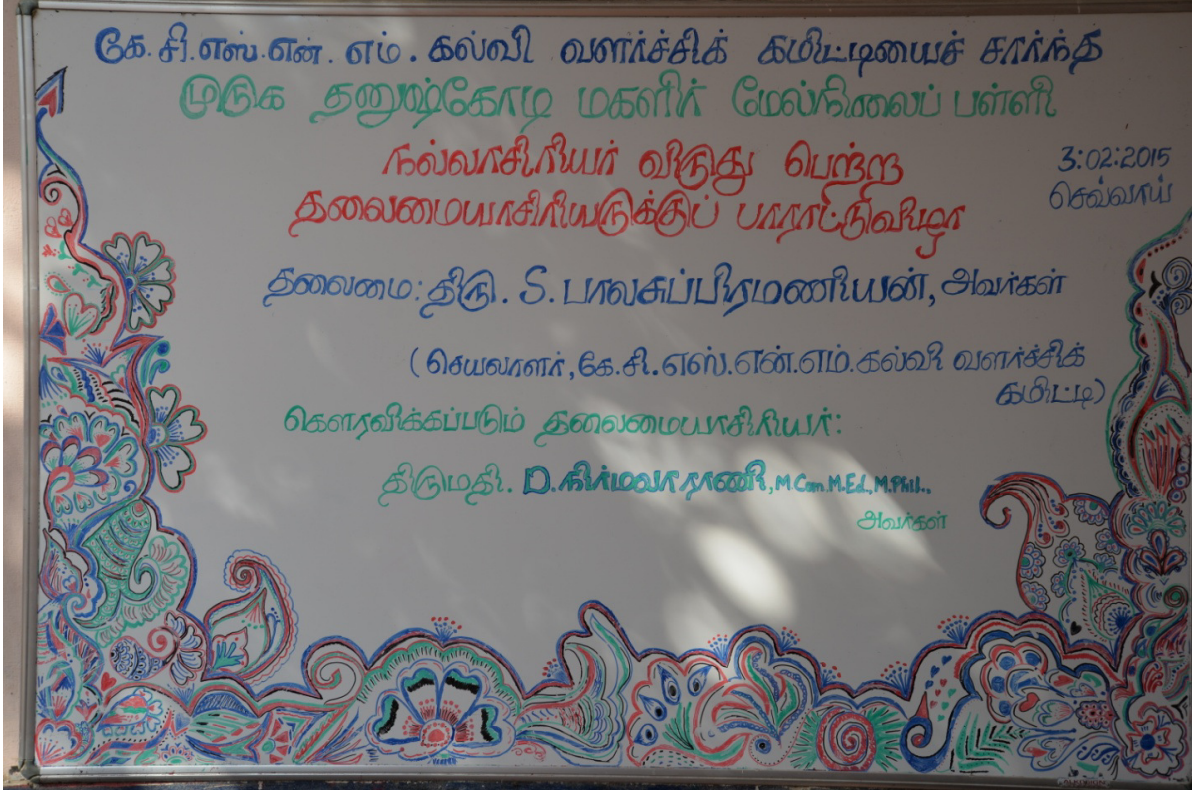 கே.சி.எஸ்.என்.எம். கல்வி வளர்ச்சிக் கமிட்டியைச் சார்ந்த
முருக தனுஷ்கோடி மகளிர் மேல்நிலைப் பள்ளி
நல்லாசிரியர் விருது பெற்ற
தலைமையாசிரியருக்குப் பாராட்டுவிழா
3:02:2015
செவ்வாய்
தலைமை: திரு. S. பாலசுப்பிரமணியன், அவர்கள்
(செயலாளர், கே.சி.எஸ்.என்.எம்.கல்வி வளர்ச்சிக்
கமிட்டி)
கௌரவிக்கப்படும் தலைமையாசிரியர்:
திருமதி. D.நிர்மலா ராணி, M.Com.M.Ed.,M.Phil.,
அவர்கள்